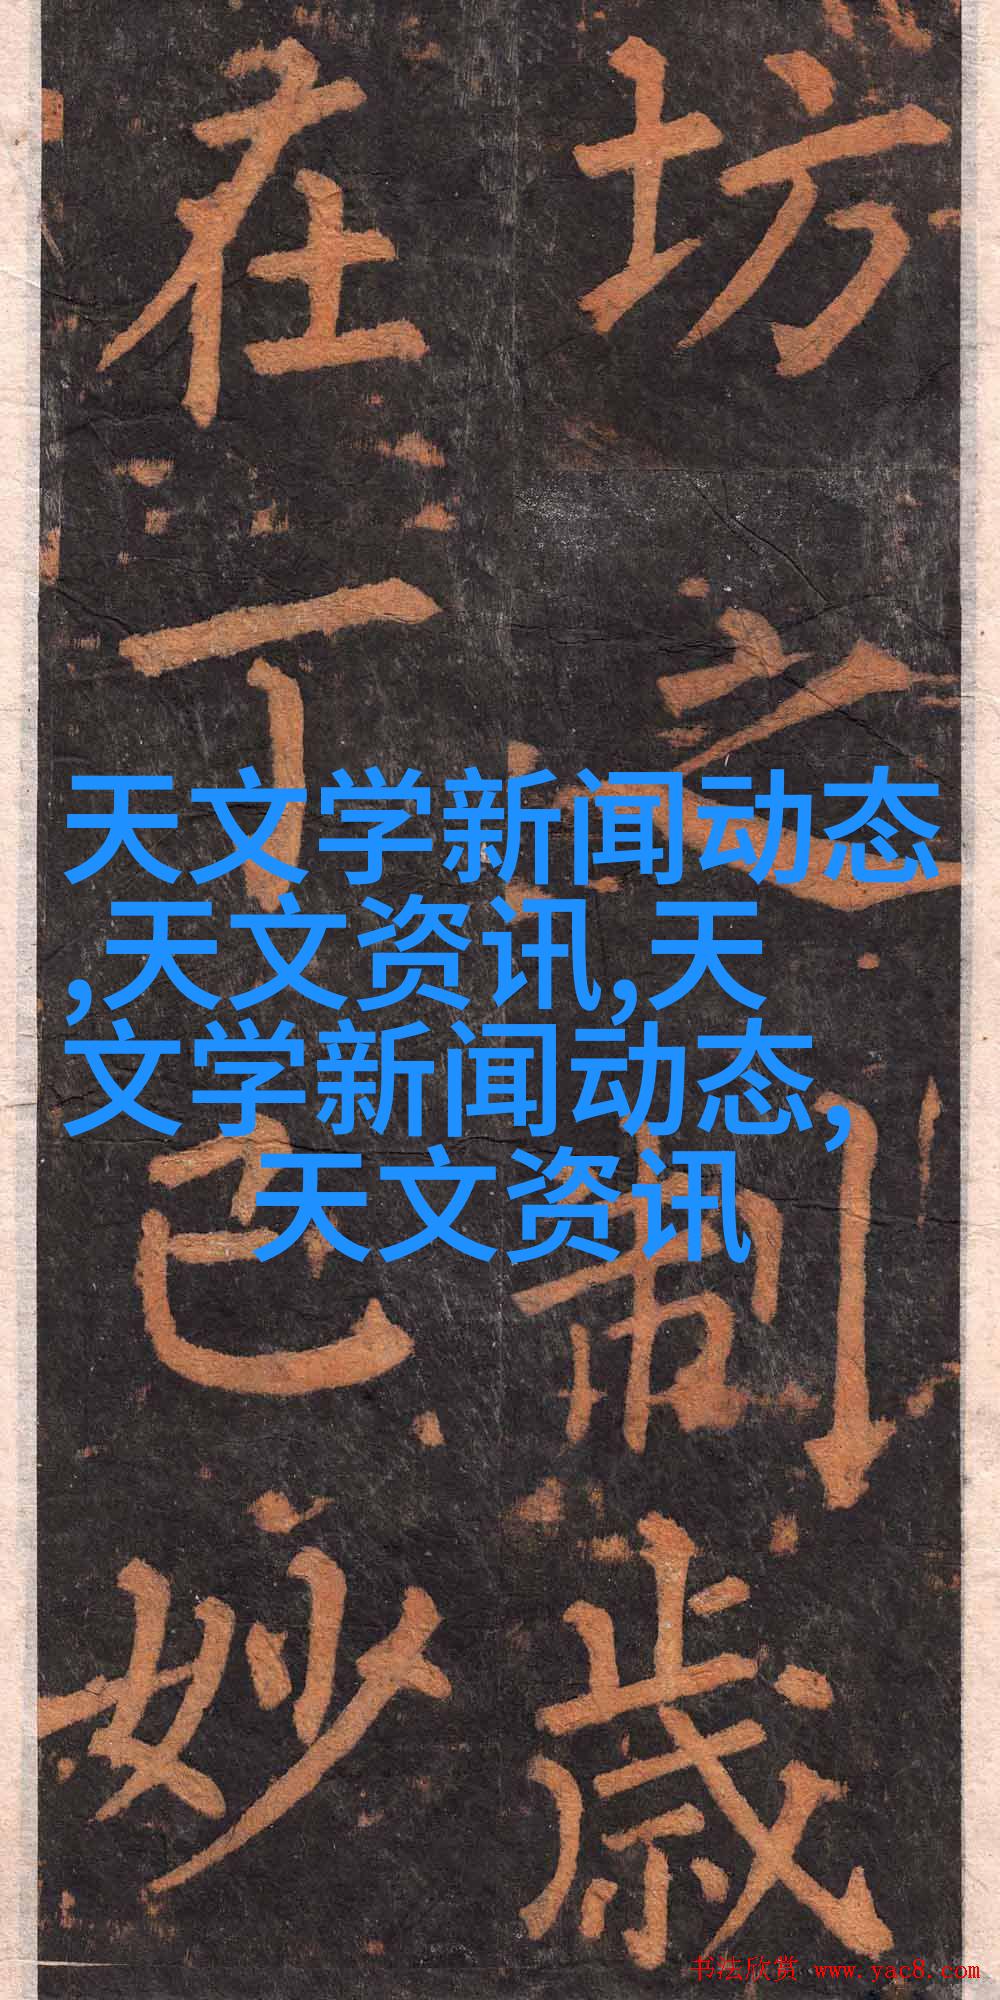 坊之制歲
在丁巳妙
天文学新闻动态
,天文资讯,天
文学新闻动态,
天文资讯
书法欣赏 www.yac8.com